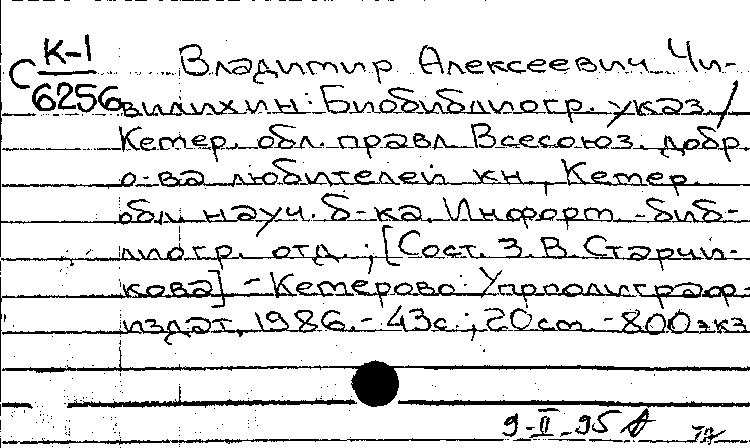 К-1
С 6256
Владимир Алексеевич Чи-
вилихин: Биобиблиогр. указ. /
Кемер. обл. правл. Всесоюз. добр.
о-ва любителей кн., Кемер.
обл. науч. б-ка. Информ.-биб-
лиогр. отд.; [Сост. З. В. Старчи-
кова] - Кемерово: Упрполиграф-
издат, 1986. - 43с.; 20см. - 800экз
9-II-95